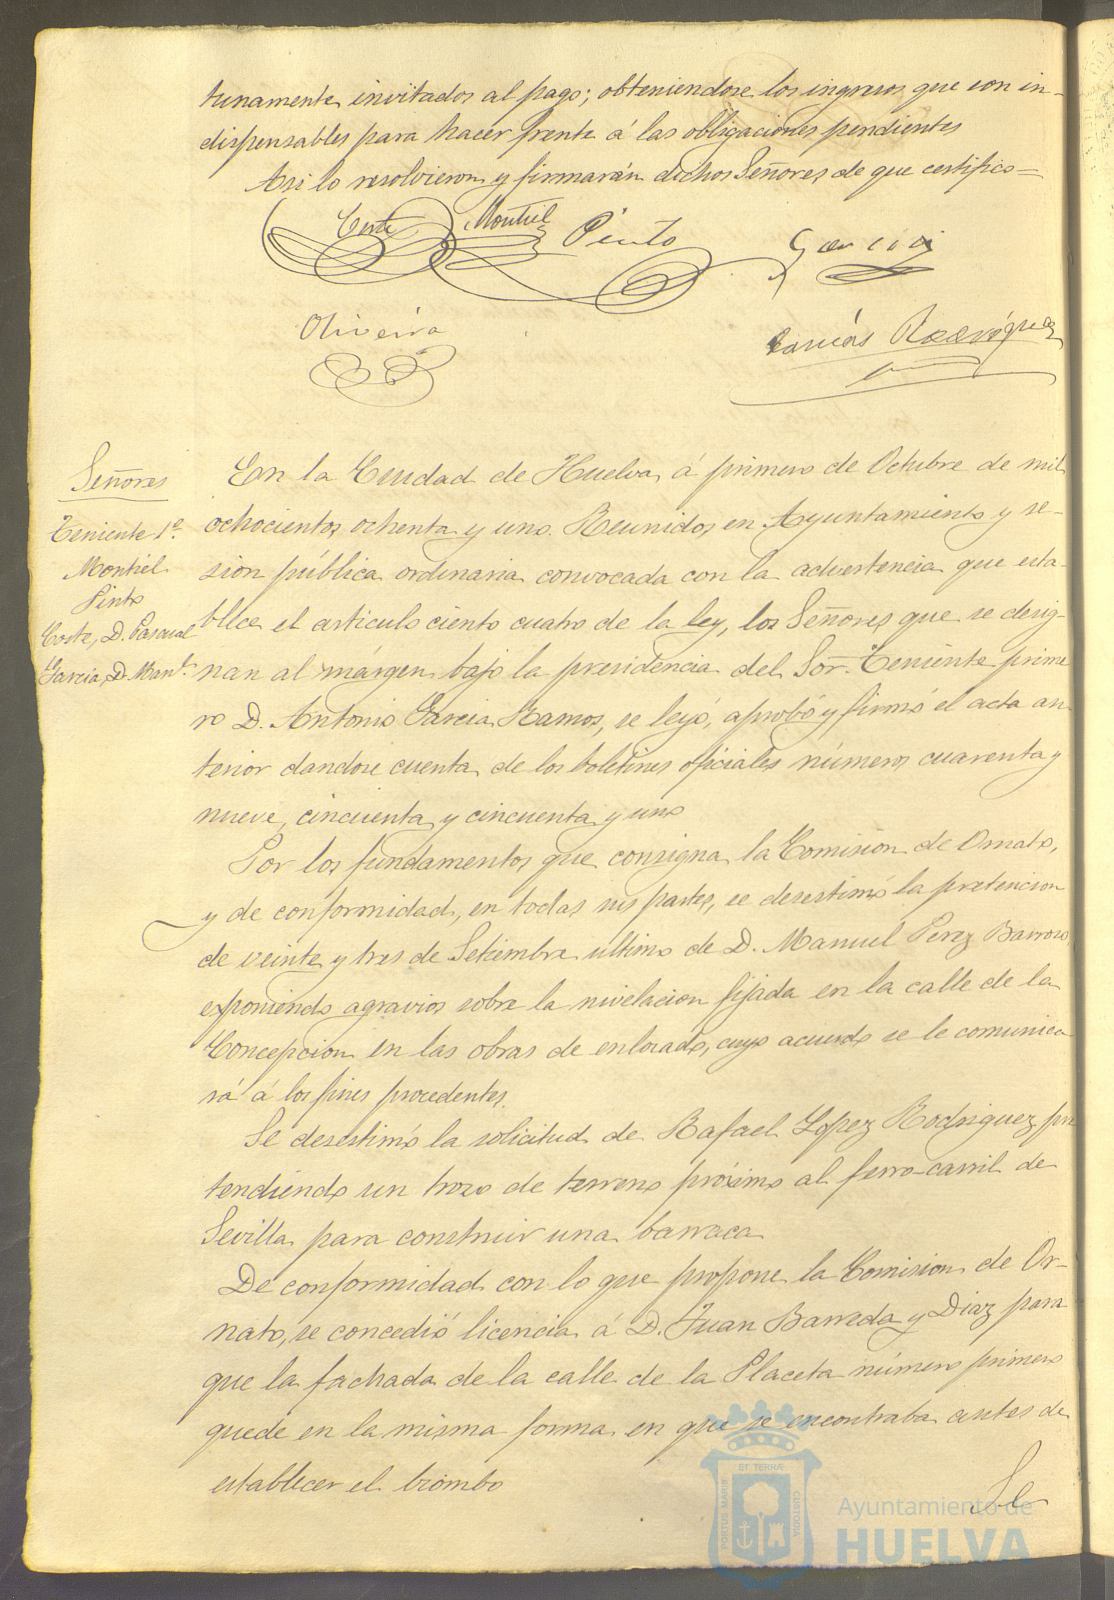 tunamente invitados al pago; obteniendose los ingresos que son in-
dispensables para hacer frente á las obligaciones pendientes
Asi lo resolvieron y firmarán dichos Señores de que certifico=
Coste Montiel Pinto Garcia
Oliveira
Rodriguez
Señores
Teniente 1º
Montiel
Pinto
Coste, D. Pascual
Garcia, D. Manl.
En la Ciudad de Huelva á primero de Octubre de mil
ochocientos ochenta y uno. Reunidos en Ayuntamiento y se-
sion pública ordinaria convocada con la advertencia que esta-
blece el articulo ciento cuatro de la ley, los Señores que se desig-
nan al márgen bajo la presidencia del Sor. Teniente prime
ro D. Antonio Garcia Ramos, se leyó, aprobó y firmó el acta an
terior dandose cuenta de los boletines oficiales números cuarenta y
nueve, cincuenta y cincuenta y uno
Por los fundamentos que consigna la Comision de Ornato,
y de conformidad, en todas sus partes, se desestimó la pretencion
de veinte y tres de Setiembre ultimo de D. Manuel Perez Barroso
exponiendo agravios sobre la nivelacion fijada en la calle de la
Concepcion en las obras de enlosado, cuyo acuerdo se le comunica
rá á los fines procedentes.
Se desestimó la solicitud de Rafael Lopez Rodriguez pre
tendiendo un trozo de terreno próximo al ferro-carril de
Sevilla para construir una barraca
De conformidad con lo que propone la Comision de Or-
nato, se concedió licencia á D. Juan Barreda y Diaz para
que la fachada de la calle de la Placeta número primero
quede en la misma forma en que se encontraba antes de
establecer el biombo
Se
PORTUS MARIS ET TERRÆ CUSTODIA
Ayuntamiento de
HUELVA